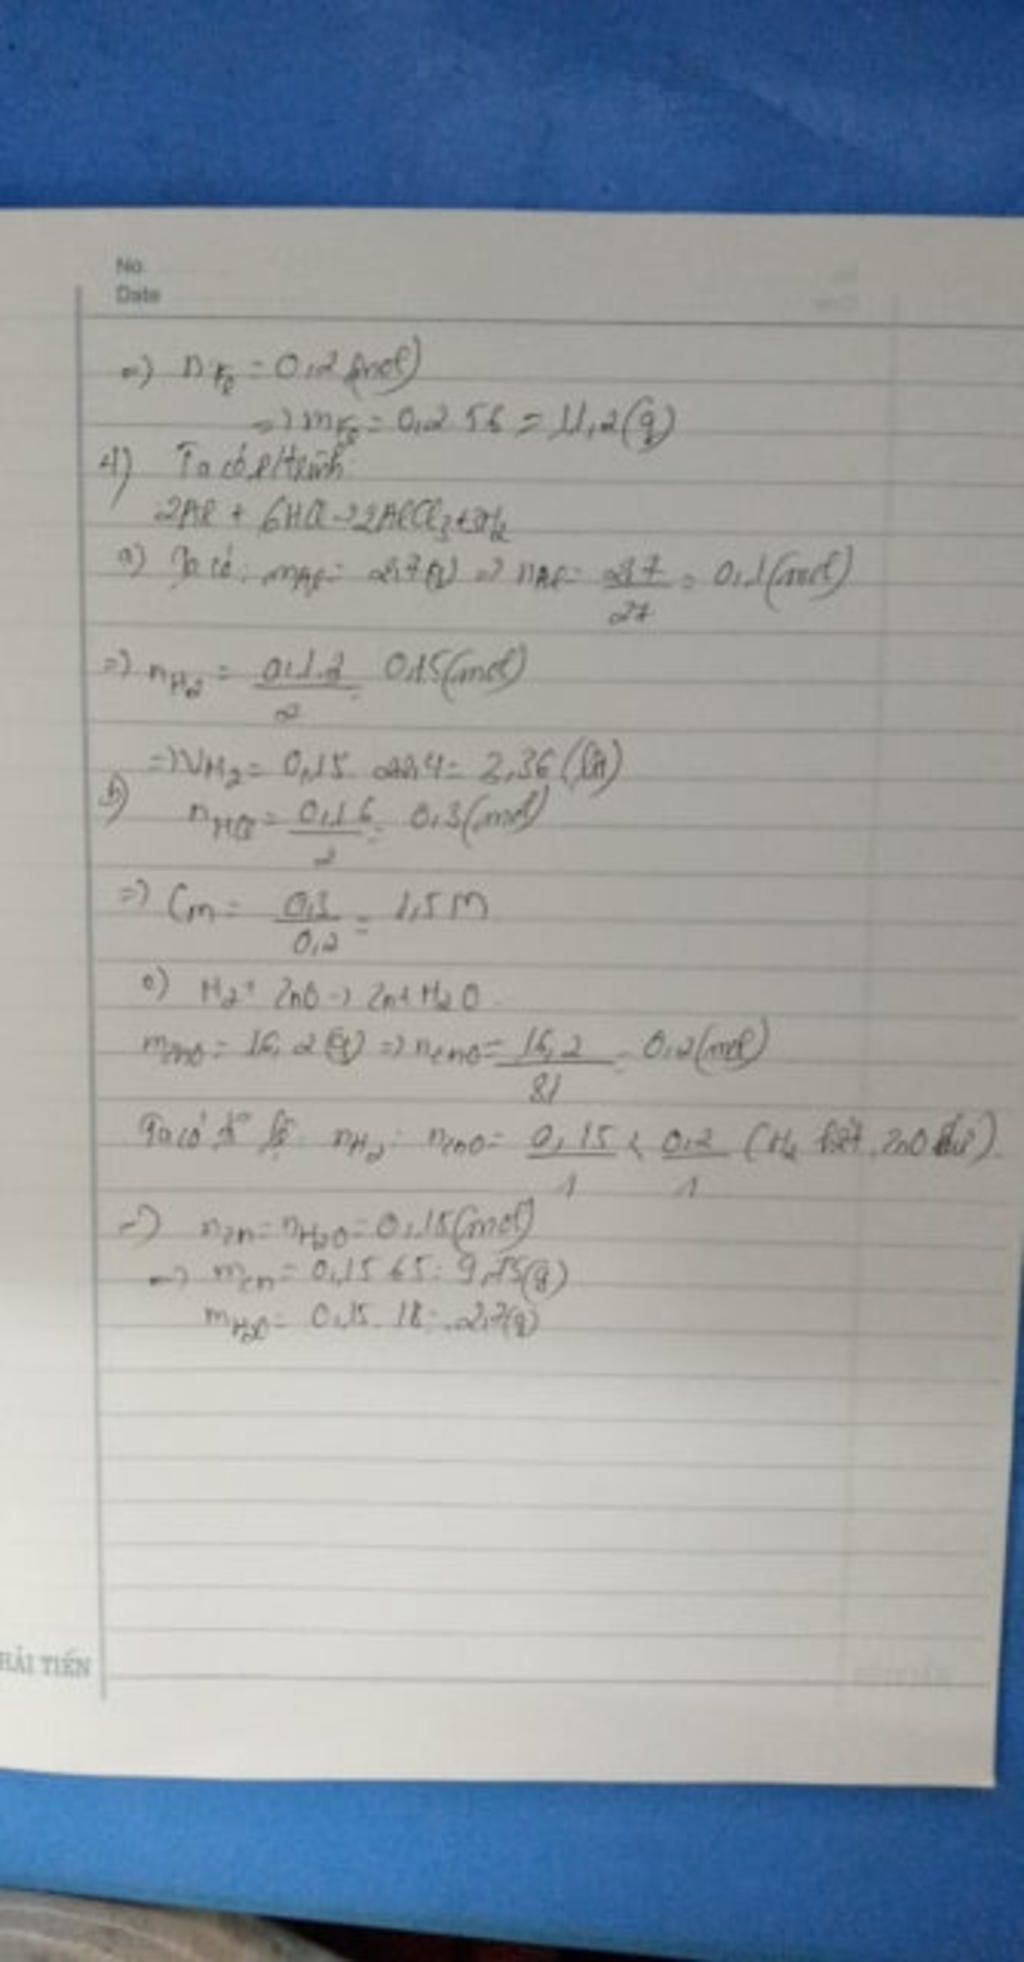 No
Date
=) nFe = 0,2 (mol)
=) mFe = 0,2 56 = 11,2 (g)
4) Ta có
2Al + 6HCl -> 2AlCl3 + 3H2
a) Ta có: mAl = 2,7(g) => nAl = 2,7/27 = 0,1 (mol)
=) nH2 = 0,1.3/2 = 0,15 (mol)
=) VH2 = 0,15. 22,4 = 3,36 (lít)
b) nHCl = 0,1.6/2 = 0,3 (mol)
=) Cm = 0,3/0,2 = 1,5M
c) H2 + ZnO -> Zn + H2O
mZnO = 16,2 (g) => nZnO = 16,2/81 = 0,2 (mol)
Ta có nH2 : nZnO = 0,15/1 < 0,2/1 (H2 hết, ZnO dư)
=) nZn = nH2O = 0,15 (mol)
=) mZn = 0,15 65 = 9,75 (g)
mH2O = 0,15. 18 = 2,7 (g)
HẢI TIẾN